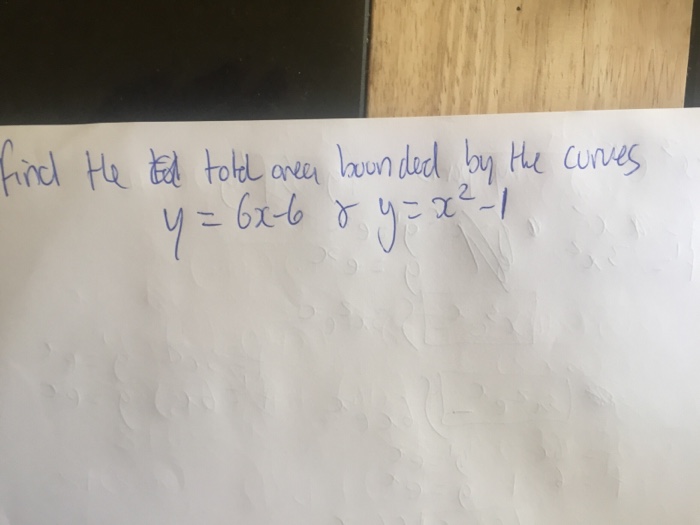 find the total area bounded by the curves
y = 6x-6 & y = x²-1